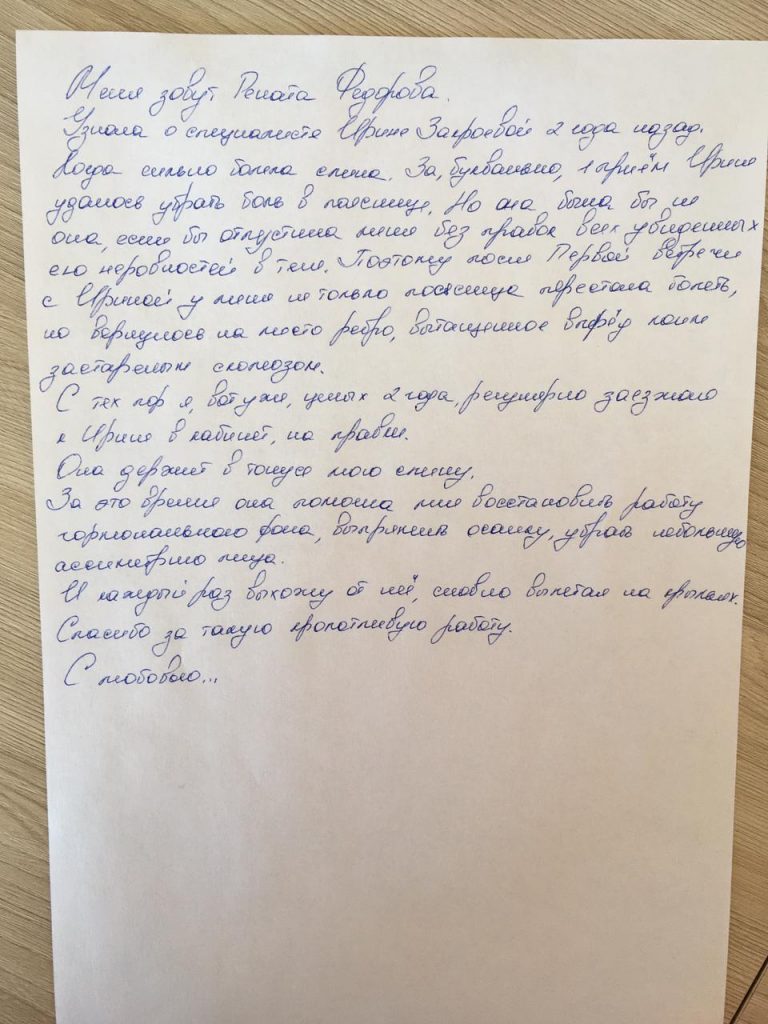 Меня зовут Рената Федорова.
Узнала о специалисте Ирине Закроевой 2 года назад.
Когда сильно болела спина. За, буквально, 1 приём Ирине
удалось убрать боль в пояснице. Но она была бы не
она, если бы отпустила меня без правок всех увиденных
ею неровностей в теле. Поэтому после Первой встречи
с Ириной у меня не только поясница перестала болеть,
но вернулось на место ребро, вытащенное вперёд моим
застарелым сколиозом.
С тех пор я, вот уже, целых 2 года, регулярно заезжаю
к Ирине в кабинет, на правки.
Она держит в тонусе мою спину.
За это время она помогла мне восстановить работу
гормонального фона, выпрямить осанку, убрать небольшую
асимметрию лица.
И каждый раз выхожу от неё, словно вылетая на крыльях.
Спасибо за такую кропотливую работу.
С любовью...